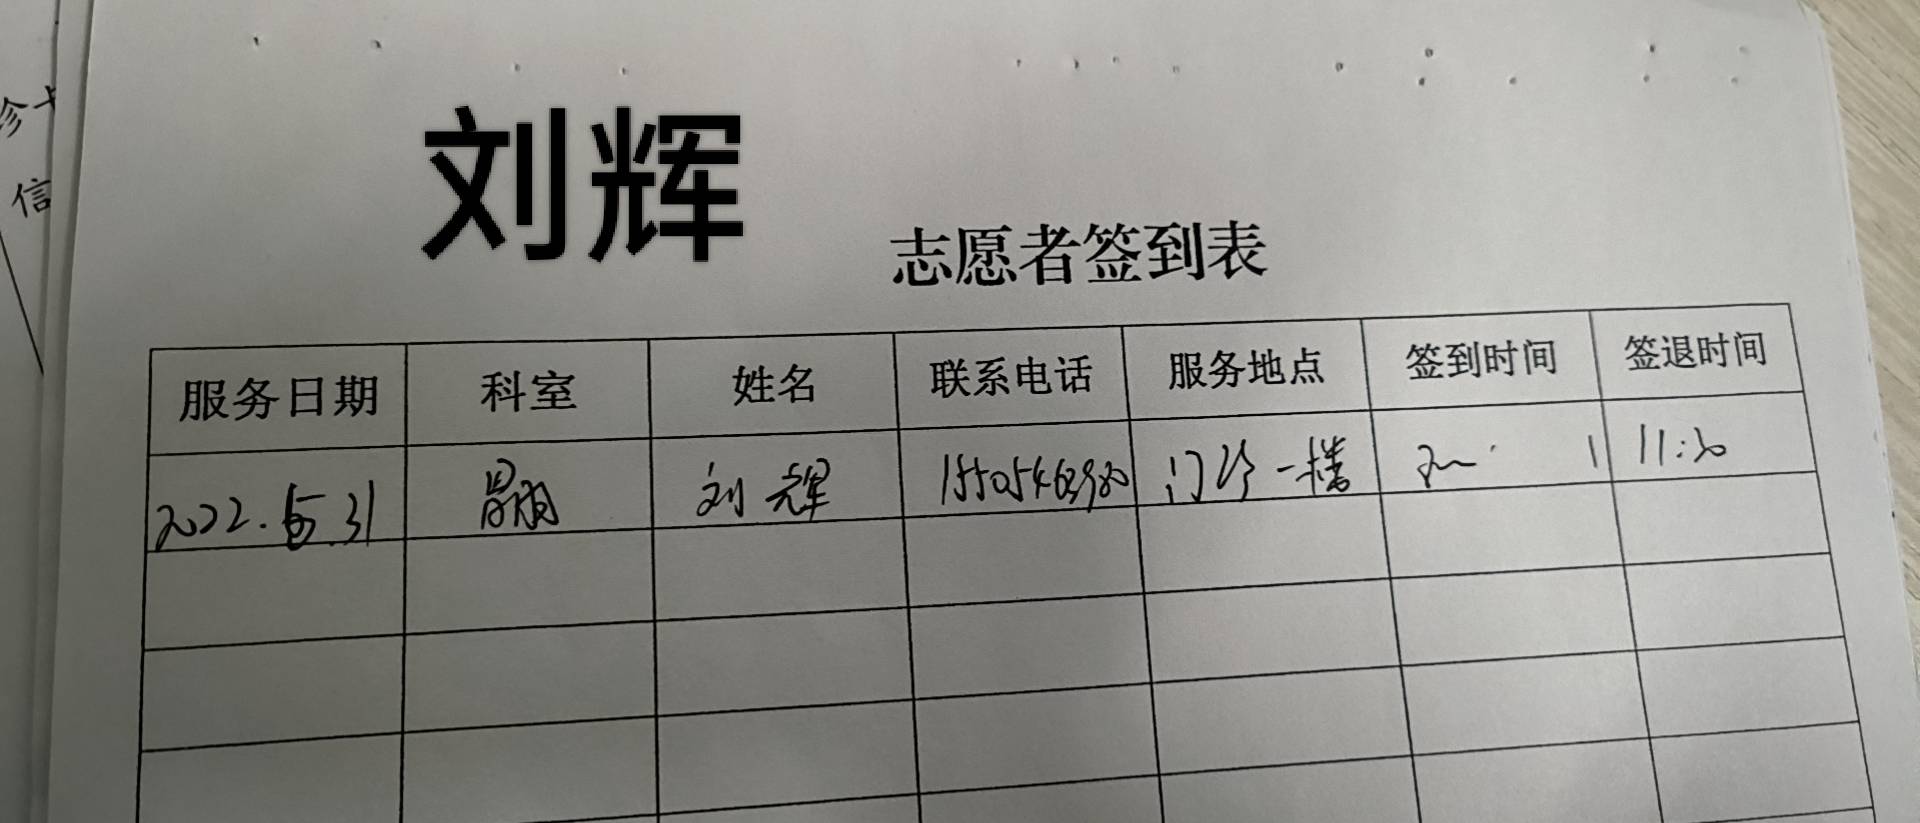 诊卡
信
刘辉
志愿者签到表
服务日期 科室 姓名 联系电话 服务地点 签到时间 签退时间
2022.5.31 刘辉 门诊一楼 11:30